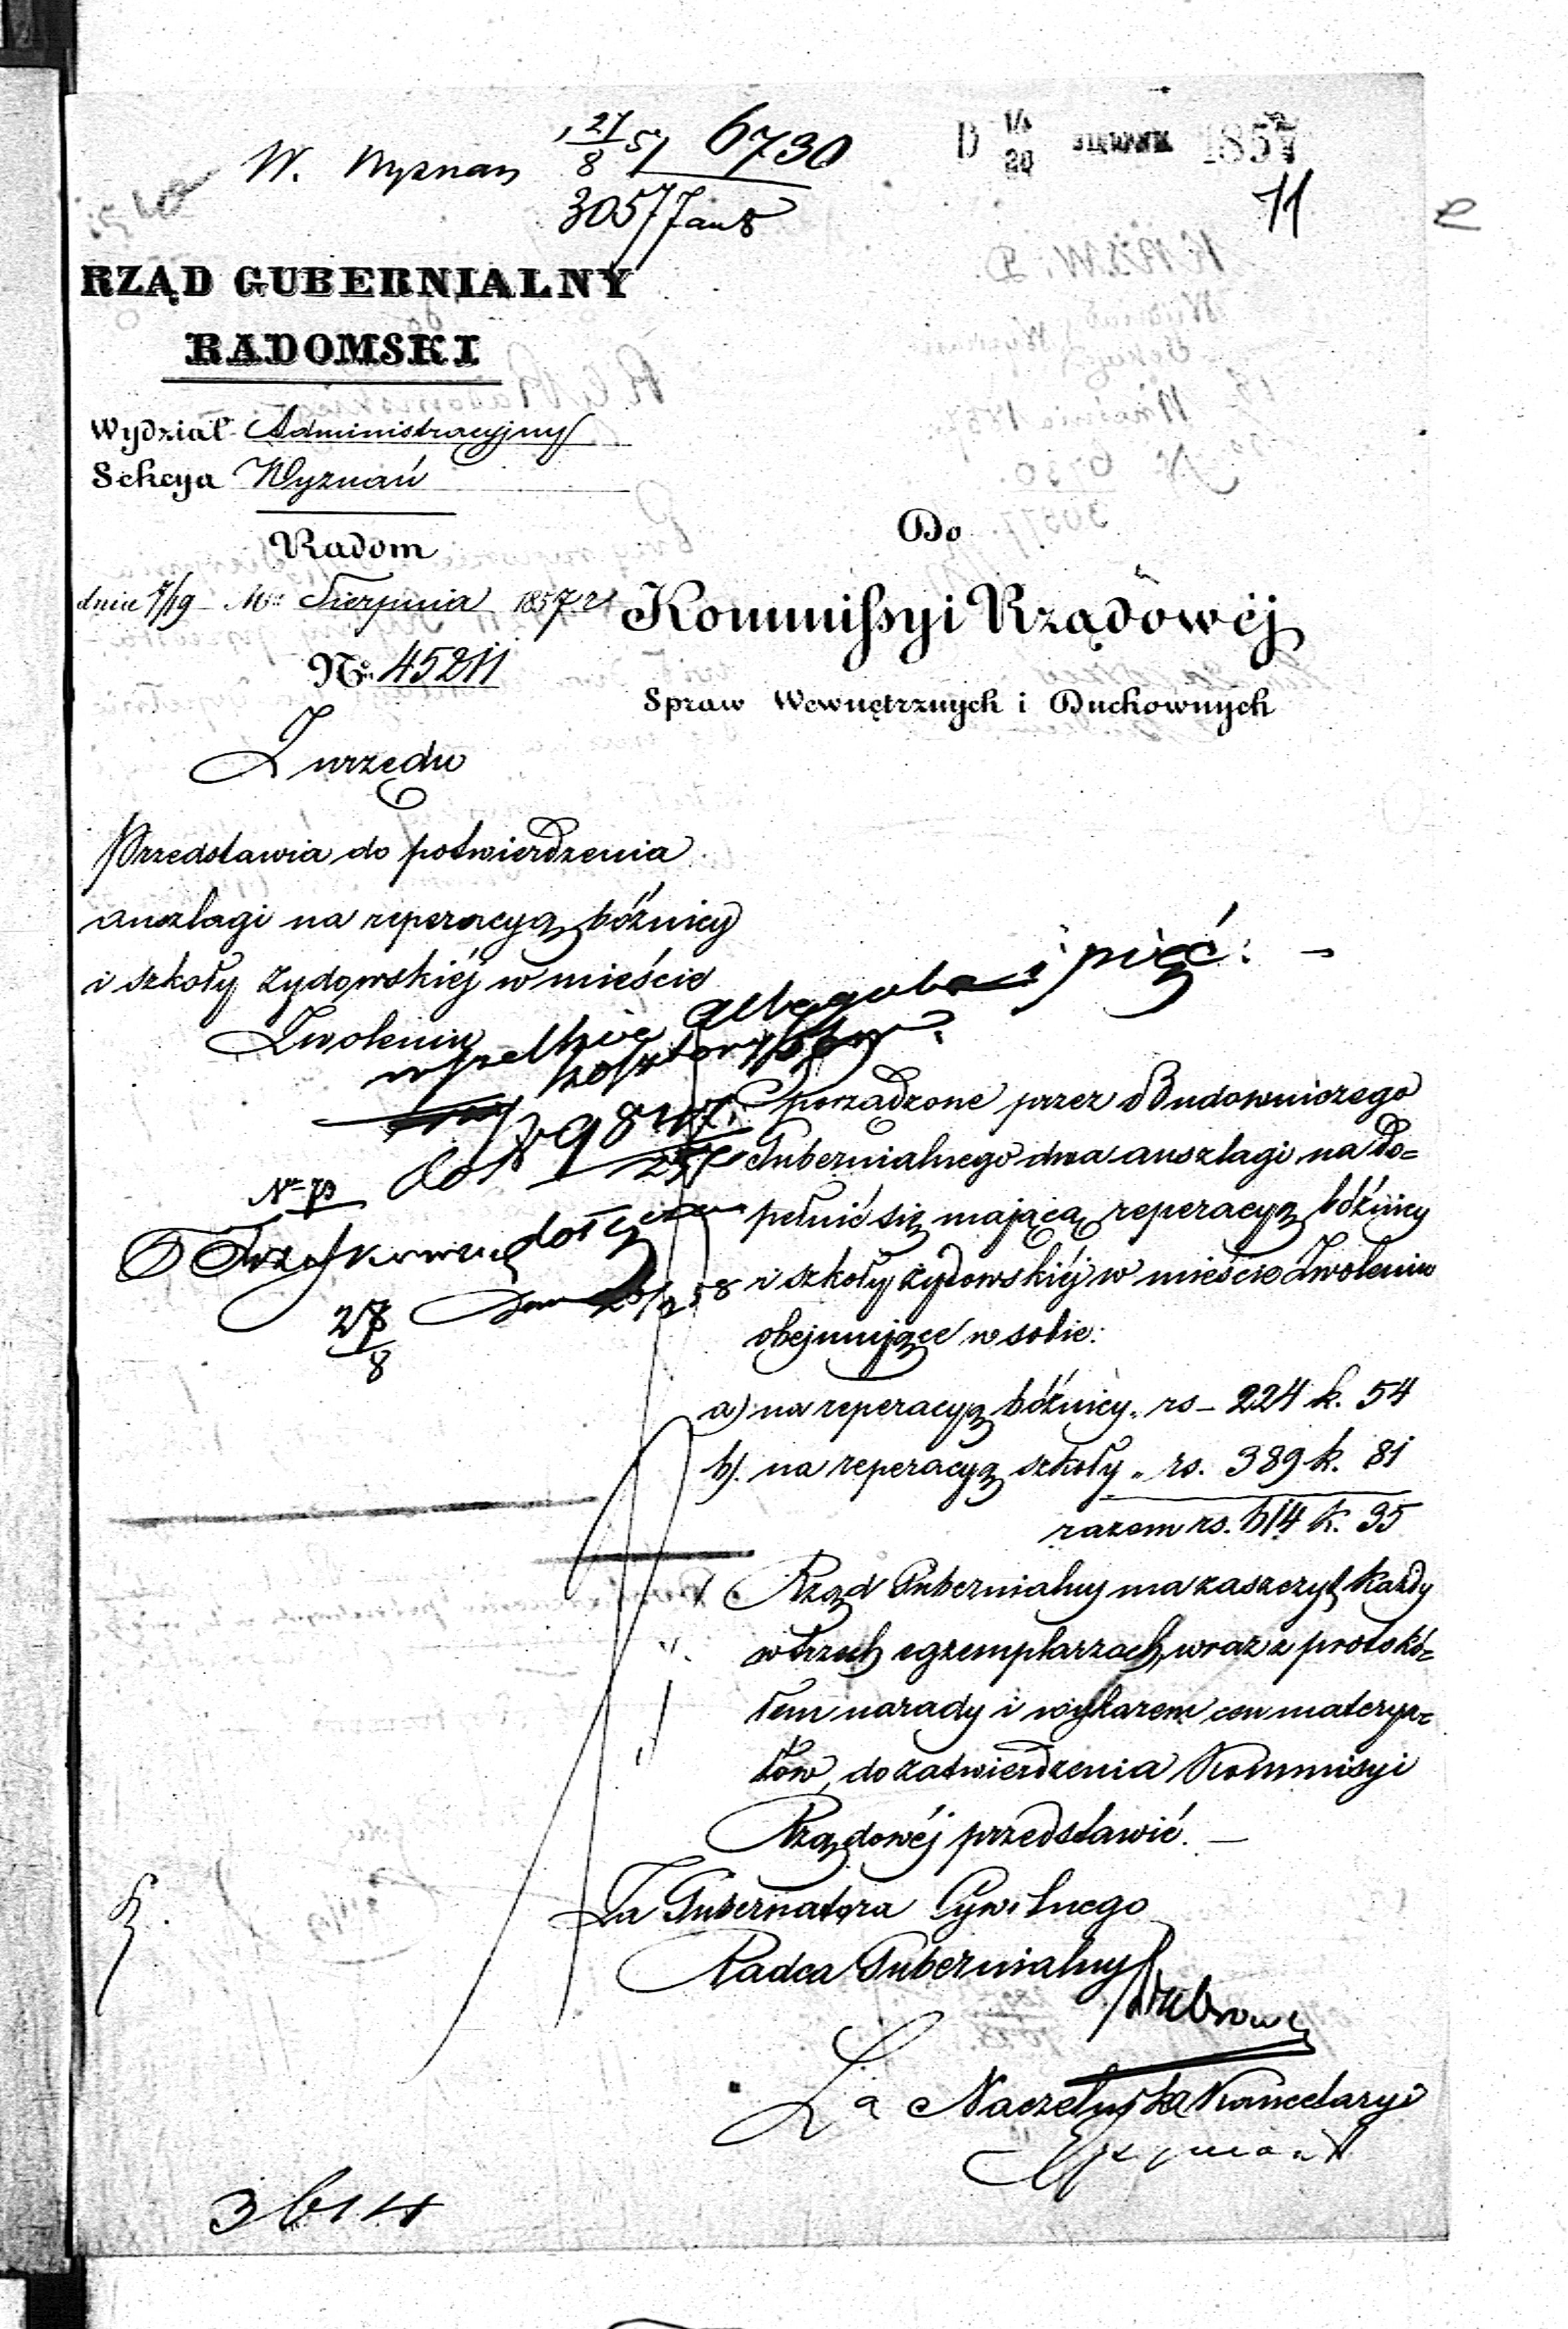 W. Wyznań 27/8 57 6730
30577
D 14/26 SIERPNIA 1857
11
RZĄD GUBERNIALNY
RADOMSKI
Wydział Administracyjny
Sekcya Wyznań
Radom
dnia 7/19 Mca Sierpnia 1857 r
No. 45211
Z urzędu
Przedstawia do potwierdzenia
anszlagi na reperacyą bóźnicy
i szkoły żydowskiéj w mieście
Zwoleniu
Do
Kommissyi Rządowéj
Spraw Wewnętrznych i Duchownych
i pięć
do N 98
27/8
Sporządzone przez Budowniczego
Gubernialnego dwa anszlagi na do=
pełnić się mającą reperacyą bóźnicy
i szkoły żydowskiéj w mieście Zwoleniu
obejmujące w sobie:
a) na reperacyą bóźnicy „ rs – 224 k. 54
b). na reperacyą szkoły „ rs. 389 k. 81
razem rs. 614 k. 35
Rząd Gubernialny ma zaszczyt każdy
w trzech egzemplarzach, wraz z protokó=
łem narady i wykazem cen materya=
łów, do zatwierdzenia Kommisyi
Rządowéj przedstawić. —
Za Gubernatora Cywilnego
Radca Gubernialny
Za Naczelnika Kancelaryi
3614